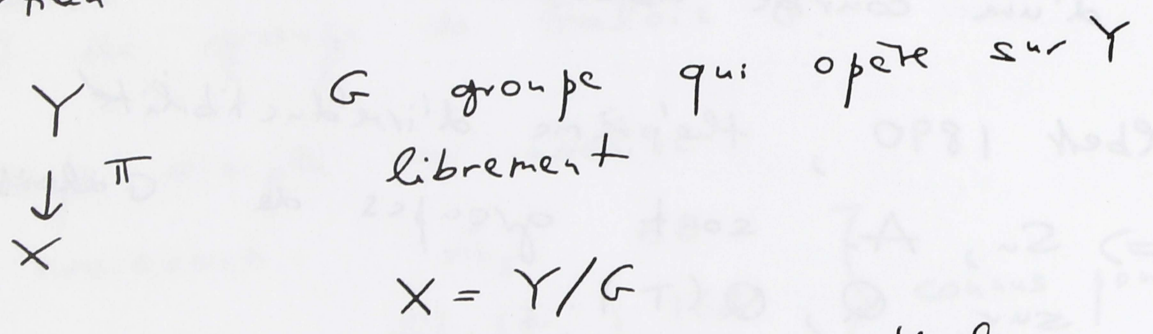 Y G groupe qui opère sur Y
↓ π librement
X
X = Y/G